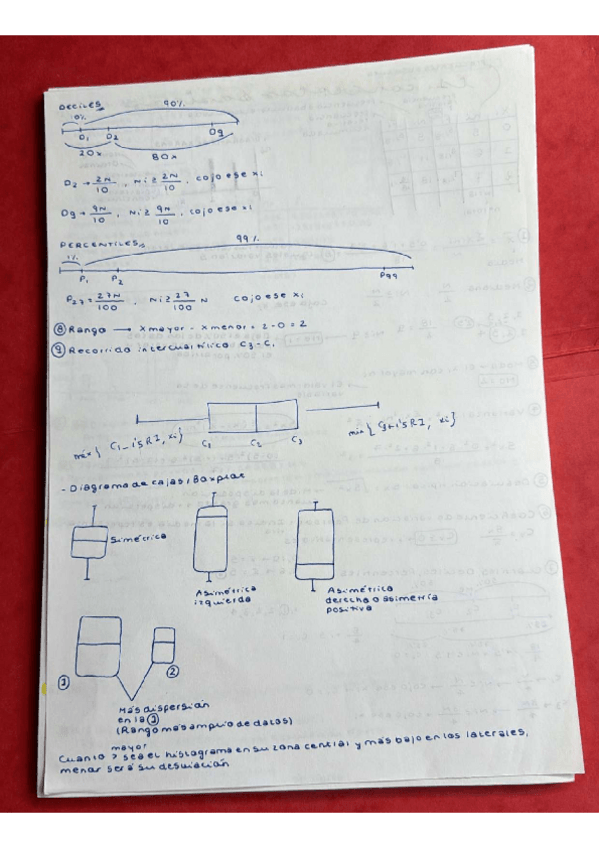 DECILES
10%
90%
D1 D2 D9
20% 80%
D2 → 2N/10 , Ni ≥ 2N/10 , cojo ese xi
D9 → 9N/10 , Ni ≥ 9N/10 , cojo ese xi
PERCENTILES
1% 99%
P1 P2 P99
P27 = 27N/100 , Ni ≥ 27/100 N cojo ese xi
⑧ Rango → x mayor - x menor = 2-0 = 2
⑨ Recorrido intercuartílico: C3 - C1
C1 C2 C3
- Diagrama de cajas / Boxplot
Simétrica
Asimétrica
izquierda
Asimétrica
derecha o asimetría
positiva
① ②
Más dispersión
en la ①
(Rango más amplio de datos)
mayor
Cuanto > sea el histograma en su zona central y más bajo en los laterales,
menor será su desviación